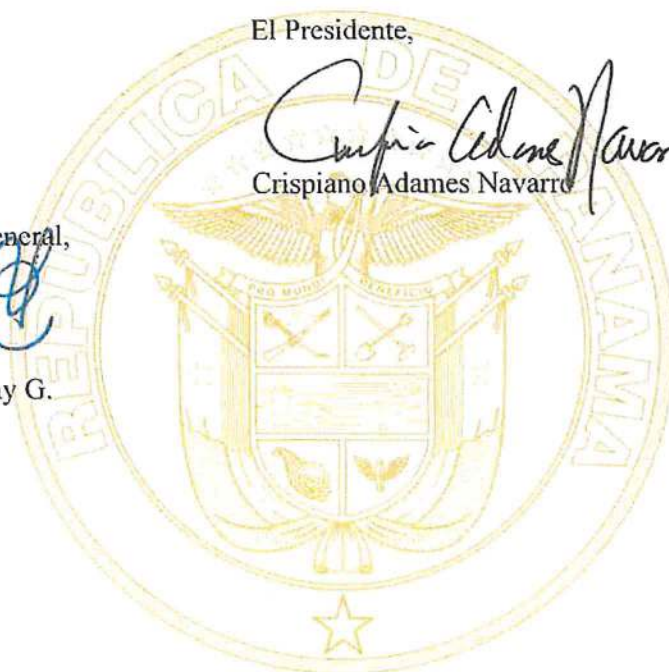 El Presidente,
Crispiano Adames Navarro
eneral,
y G.
REPUBLICA DE PANAMA
PRO MUNDI BENEFICIO